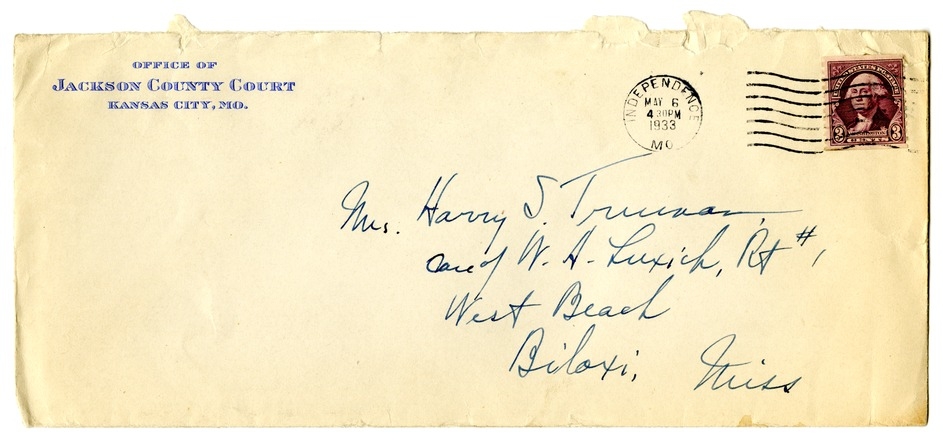 OFFICE OF
JACKSON COUNTY COURT
KANSAS CITY, MO.
INDEPENDENCE
MAY 6
4 30PM
1933
MO
UNITED STATES POSTAGE
WASHINGTON
3 CENTS 3
Mrs. Harry S. Truman,
care of W. A. Luxich, Rt #1
West Beach
Biloxi, Miss